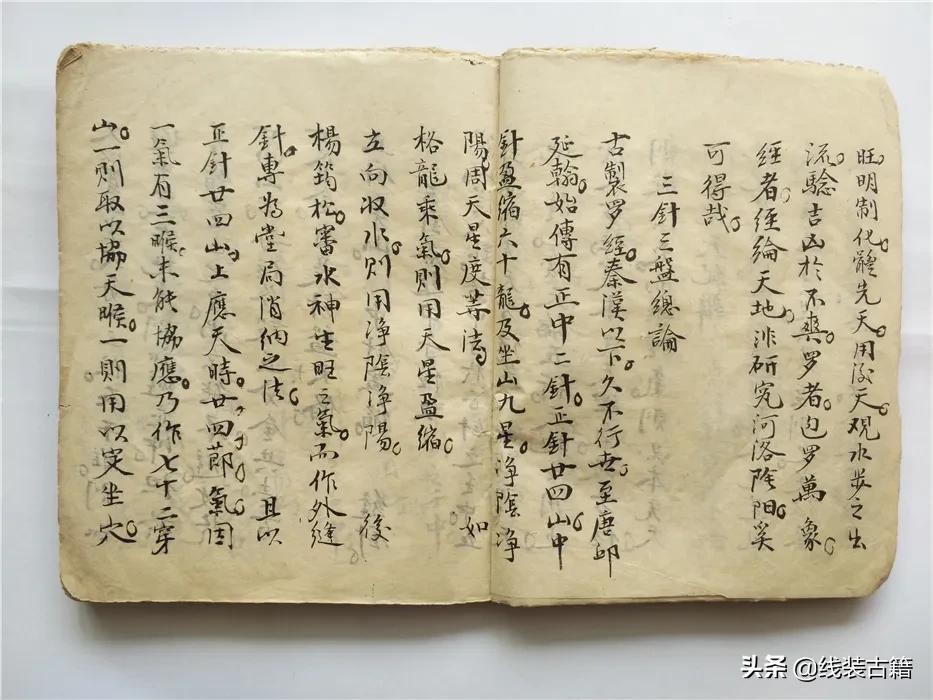 旺。明制化體。先天。用後天。观水步之出
流。驗吉凶於不爽。罗者。包罗萬象。
經者。經綸天地。非研究河洛陰阳。奚
可得哉。
三針三盤總論
古製罗經。秦漢以下。久不行世。至唐邱
延翰。始傳有正中二針。正針廿四山。中
針盈縮六十龍。及坐山九星。净陰净
陽。周天星度等法。如
格龍乘氣。則用天星盈縮。
立向収水。則用净陰净陽。後
楊筠松。審水神生旺之氣。而作外縫
針。專為堂局消納之法。且以
正針廿四山。上應天時。廿四節氣。因
一氣有三候。未能協應。乃作七十二穿
山。一則取以協天候。一則用以定坐穴。
头条 @线装古籍